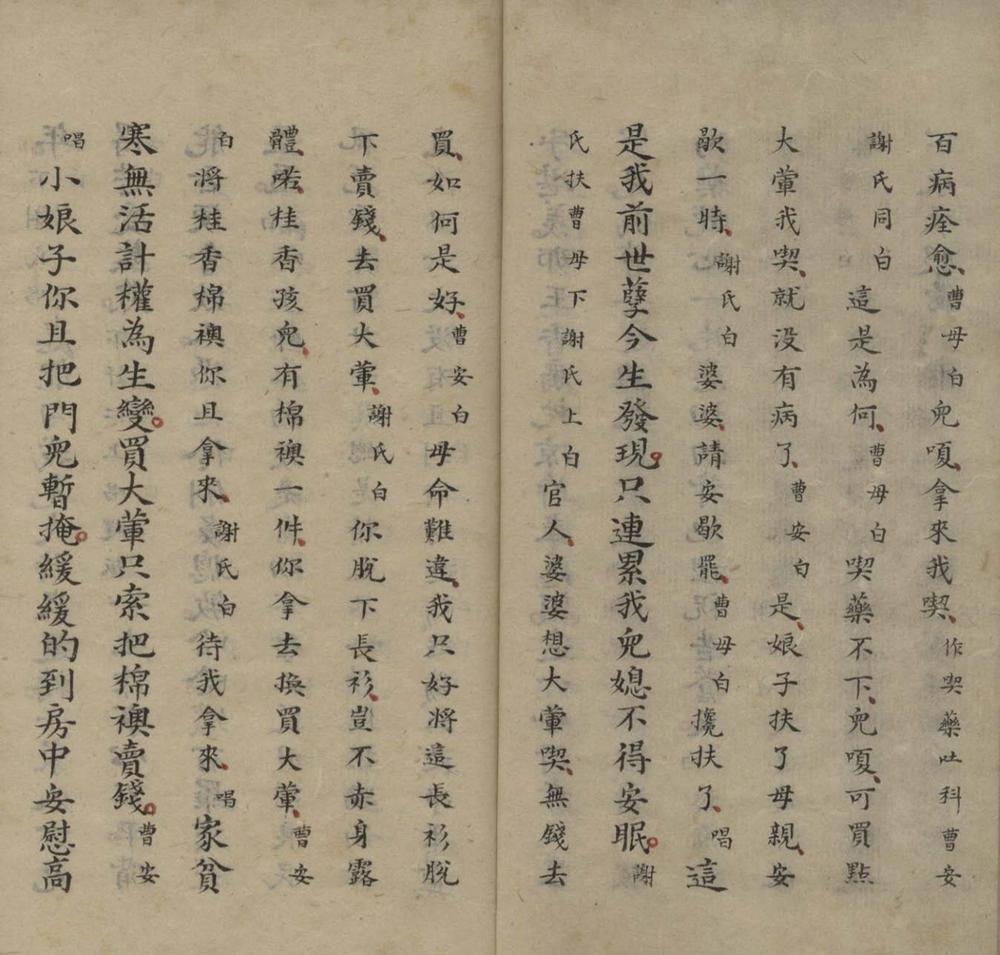 百病痊愈曹母白兒嗄拿來我喫作喫藥吐科曹安
謝氏同白這是為何曹母白喫藥不下兒嗄可買點
大葷我喫就没有病了曹安白是娘子扶了母親安
歇一時謝氏白婆婆請安歇罷曹母白攙扶了唱這
是我前世孽今生發現只連累我兒媳不得安眠謝
氏扶曹母下謝氏上白官人婆婆想大葷喫無錢去
買如何是好曹安白母命難違我只好將這長衫脫
下賣錢去買大葷謝氏白你脫下長衫豈不赤身露
體喏桂香孩兒有棉襖一件你拿去換買大葷曹安
白將桂香綿襖你且拿來謝氏白待我拿來唱家貧
寒無活計權為生變買大葷只索把棉襖賣錢曹安
唱小娘子你且把門兒暫掩緩緩的到房中安慰高